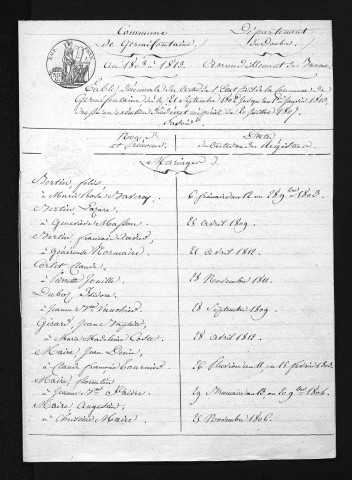 Commune
Département
de Germéfontaine
du Doubs
An 1803 à 1813.
Arrondissement de Baume
Table Décennale des Actes de l'Etat Civil de la Commune de
Germéfontaine du 21 Septembre 1802 jusqu'au 1er Janvier 1813,
dressée en exécution du Décret impérial du 20 Juillet 1807.
Savoir
Noms
et Prénoms
Date
des Actes dans les Registres
Mariages
Bertin félix
à Marie
6 frimaire an 12 ou 28 9bre 1803.
Bertin Lazare
à Geneviève Masson
25 Avril 1809.
Bertin françois Xavier
à Généreuse Normaire
21 Avril 1812.
Corlet Claude
à Pierrette Jouille
28 Novembre 1811.
Duboz Isidore
à Jeanne Vauchier
28 Septembre 1809.
Girard Jean Baptiste
à Marie Madeleine Colle
28 Avril 1812.
Maire Jean Denis
à Claude françoise Tournier
26 Pluviose an 11 ou 15 février 1803.
Maire florentin
à Jeanne
29 Brumaire an 13, ou 20 9bre 1804.
Maire Augustin
à Christine Maire
25 Novembre 1806.